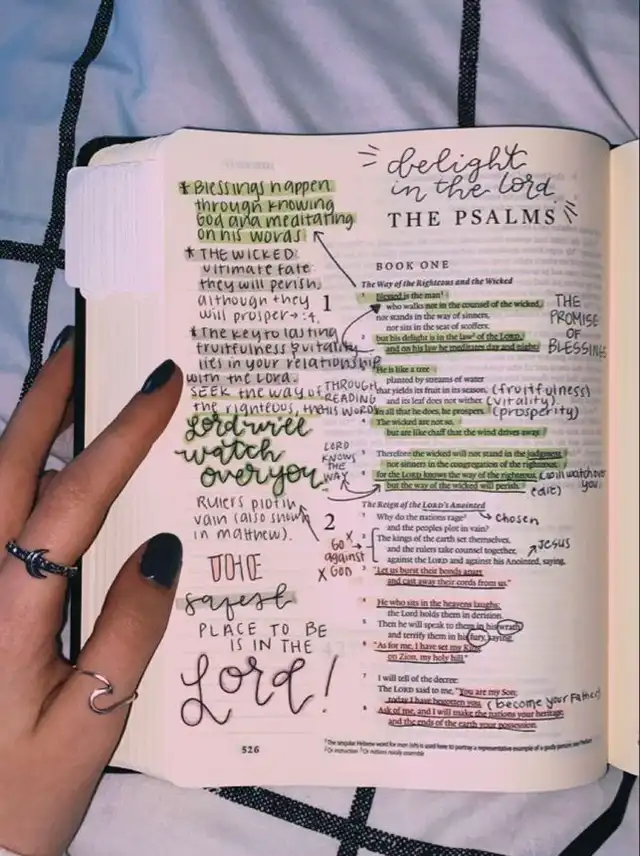 delight
in the Lord
THE PSALMS
BOOK ONE
The Way of the Righteous and the Wicked
1
1 Blessed is the man1
who walks not in the counsel of the wicked,
nor stands in the way of sinners,
nor sits in the seat of scoffers;
2 but his delight is in the law2 of the LORD,
and on his law he meditates day and night.
3 He is like a tree
planted by streams of water
that yields its fruit in its season, (fruitfulness)
and its leaf does not wither. (vitality)
In all that he does, he prospers. (prosperity)
4 The wicked are not so,
but are like chaff that the wind drives away.
5 Therefore the wicked will not stand in the judgment,
nor sinners in the congregation of the righteous;
6 for the LORD knows the way of the righteous, (will watch over you)
but the way of the wicked will perish.
THE
PROMISE
OF
BLESSINGS
The Reign of the LORD's Anointed
chosen
2
1 Why do the nations rage3
and the peoples plot in vain?
2 The kings of the earth set themselves,
and the rulers take counsel together,
against the LORD and against his Anointed, saying,
Jesus
3 "Let us burst their bonds apart
and cast away their cords from us."
4 He who sits in the heavens laughs;
the Lord holds them in derision.
5 Then he will speak to them in his wrath,
and terrify them in his fury, saying,
6 "As for me, I have set my King
on Zion, my holy hill."
7 I will tell of the decree:
The LORD said to me, "You are my Son;
today I have begotten you. (become your Father)
8 Ask of me, and I will make the nations your heritage,
and the ends of the earth your possession.
* Blessings happen
through knowing
God and meditating
on his words
* THE WICKED
ultimate fate:
they will perish,
although they
will prosper → :4.
* The key to lasting
fruitfulness & vitality
lies in your relationship
with the Lord.
SEEK THE WAY OF
the righteous,
THROUGH
READING
HIS WORD
Lord will
watch
over you
LORD
KNOWS
THE
WAY
Rulers plot in
vain (also shown
in matthew).
GO
against
GOD
THE
safest
PLACE TO BE
IS IN THE
Lord!
526